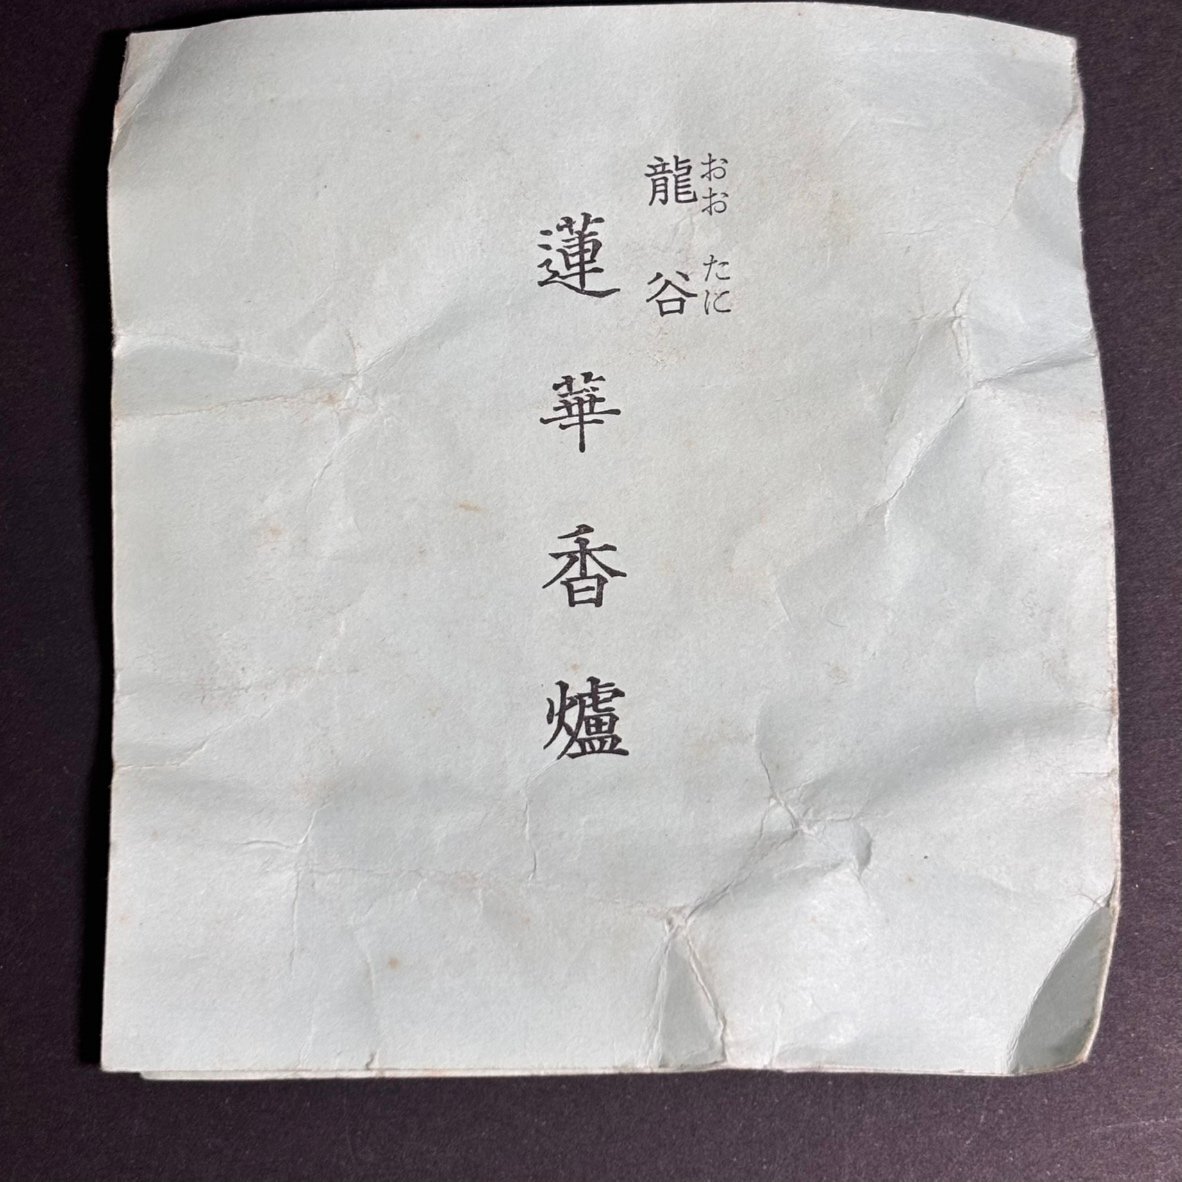 龍谷
おおたに
蓮華香爐